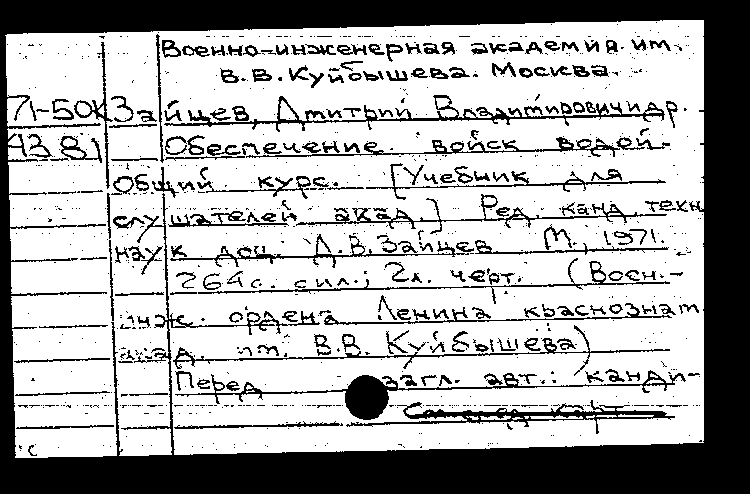 Военно-инженерная академия им.
В.В. Куйбышева. Москва.
71-50К Зайцев, Дмитрий Владимирович и др.
4381 Обеспечение войск водой.-
Общий курс. [Учебник для
слушателей акад.] Ред. канд. техн
наук доц. Д.В. Зайцев М., 1971.
264с. с ил.; 2л. черт. (Воен.-
инж. ордена Ленина краснознам.
акад. им. В.В. Куйбышева)
Перед загл. авт.: канди-
См. след. карт